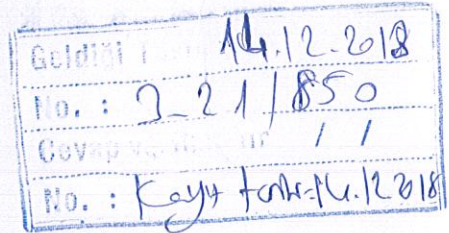 Geldiği T 14.12.2018
No. : 2-21/850
Cevap / /
No. : Kayıt 14.12.2018